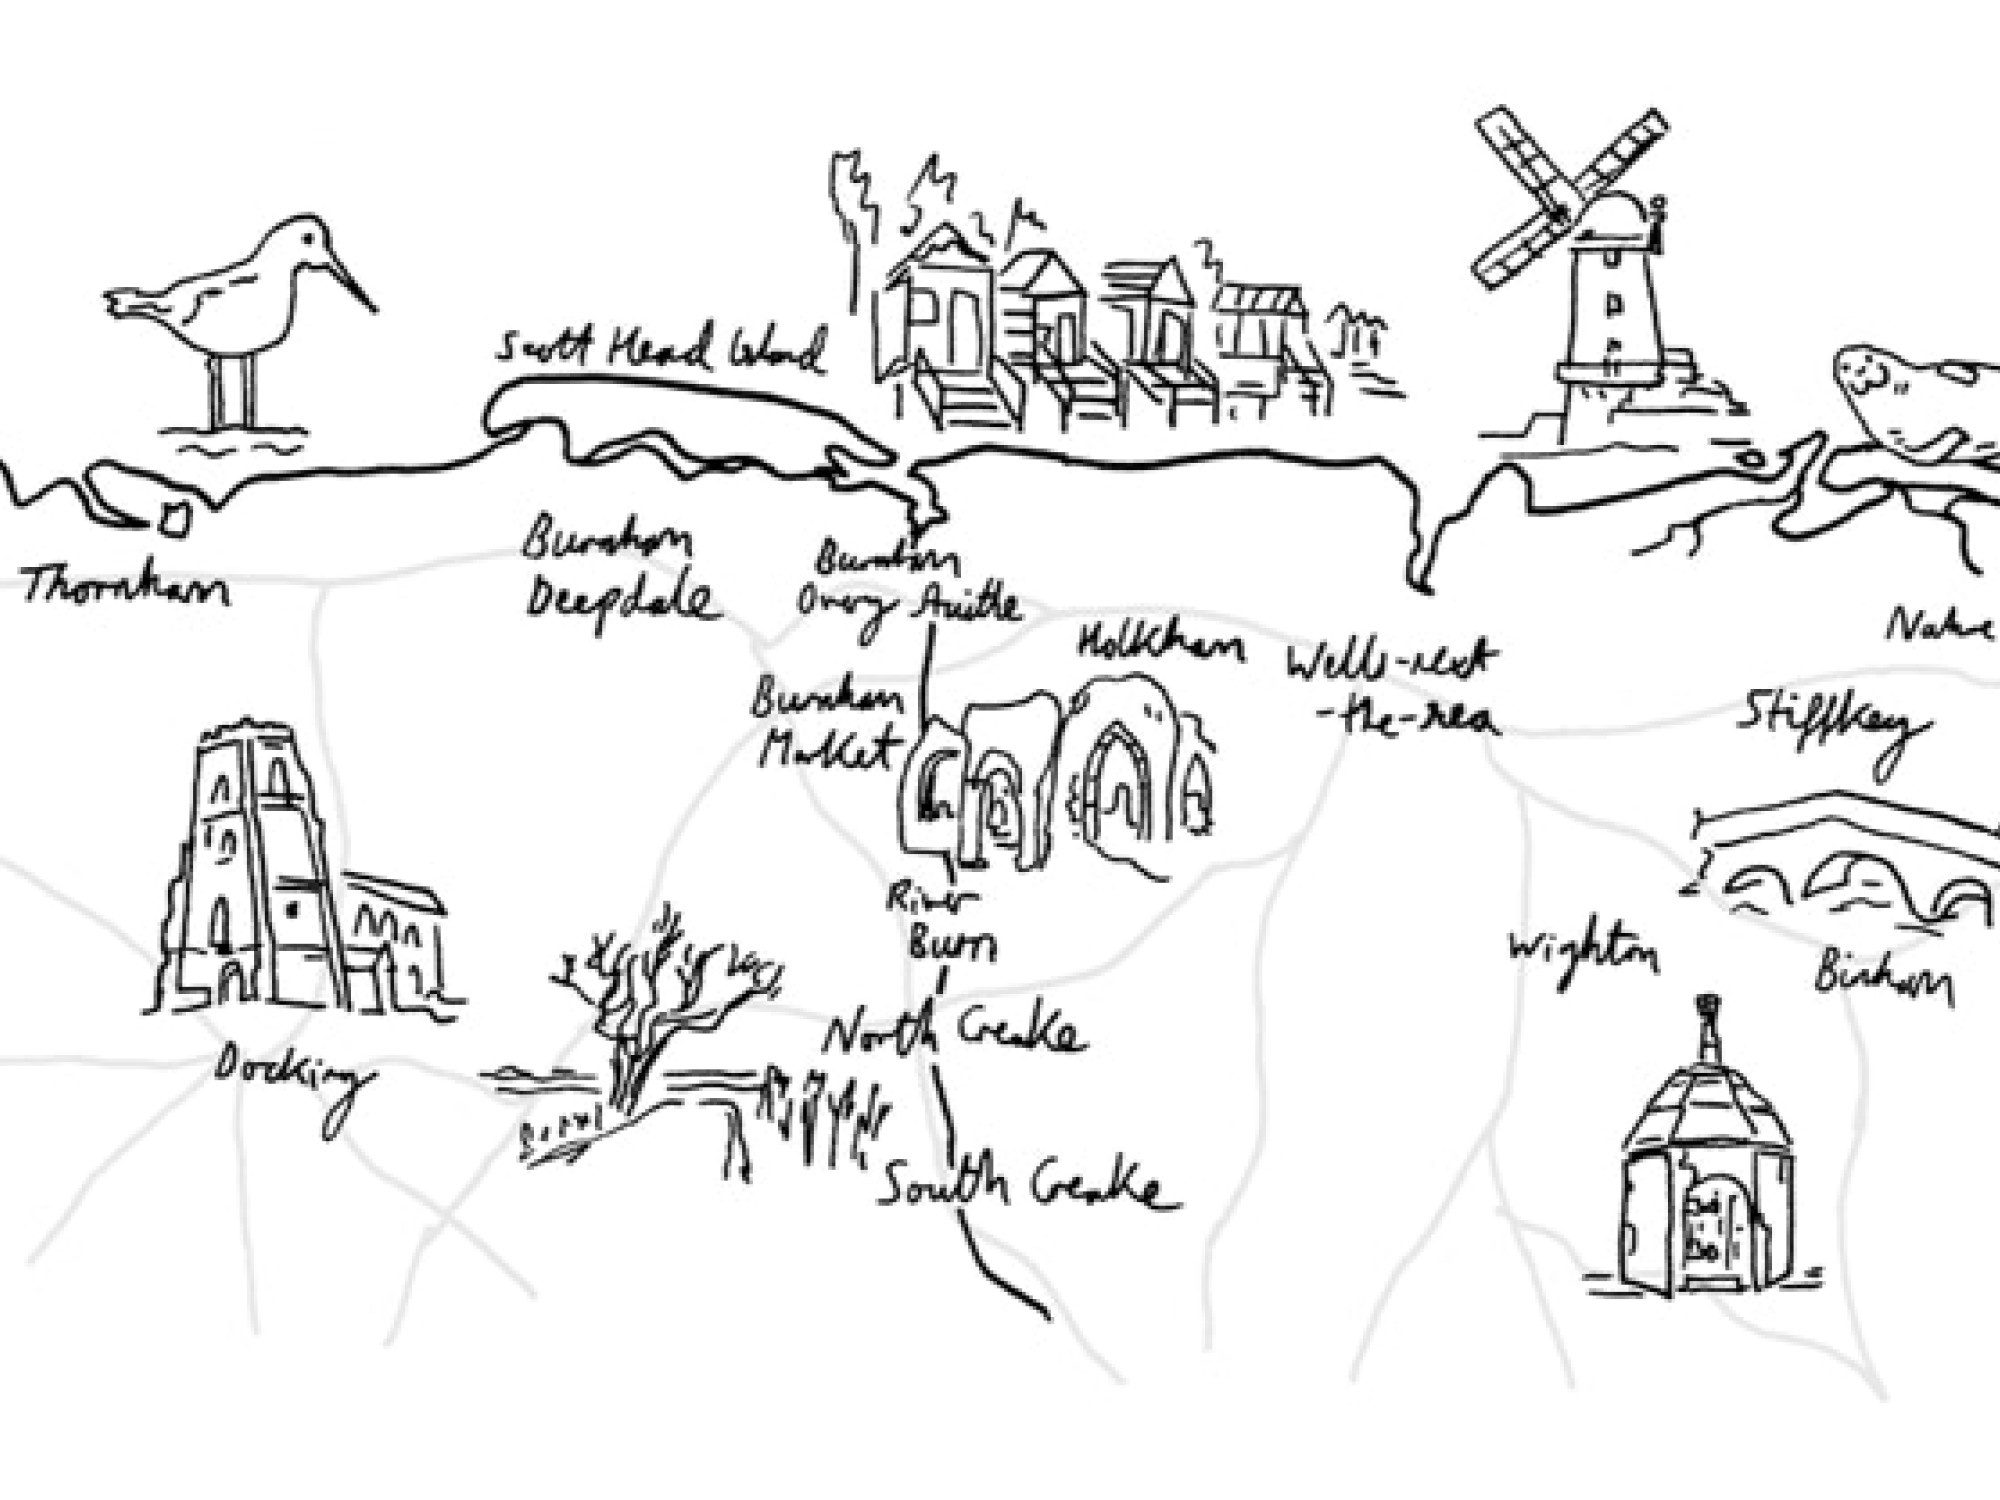 Scott Head Island
Thornham
Burnham
Deepdale
Burnham
Overy Staithe
Holkham
Wells-next
-the-sea
Burnham
Market
Stiffkey
River
Burn
Wighton
Binham
North Creake
Docking
South Creake